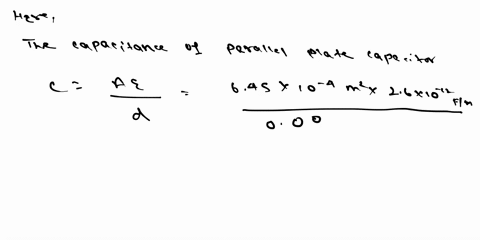 Here,
The capacitance of parallel plate capacitor
C = Aε / d = 6.45 × 10⁻⁴ m² × 2.6×10⁻¹² F/m / 0.00